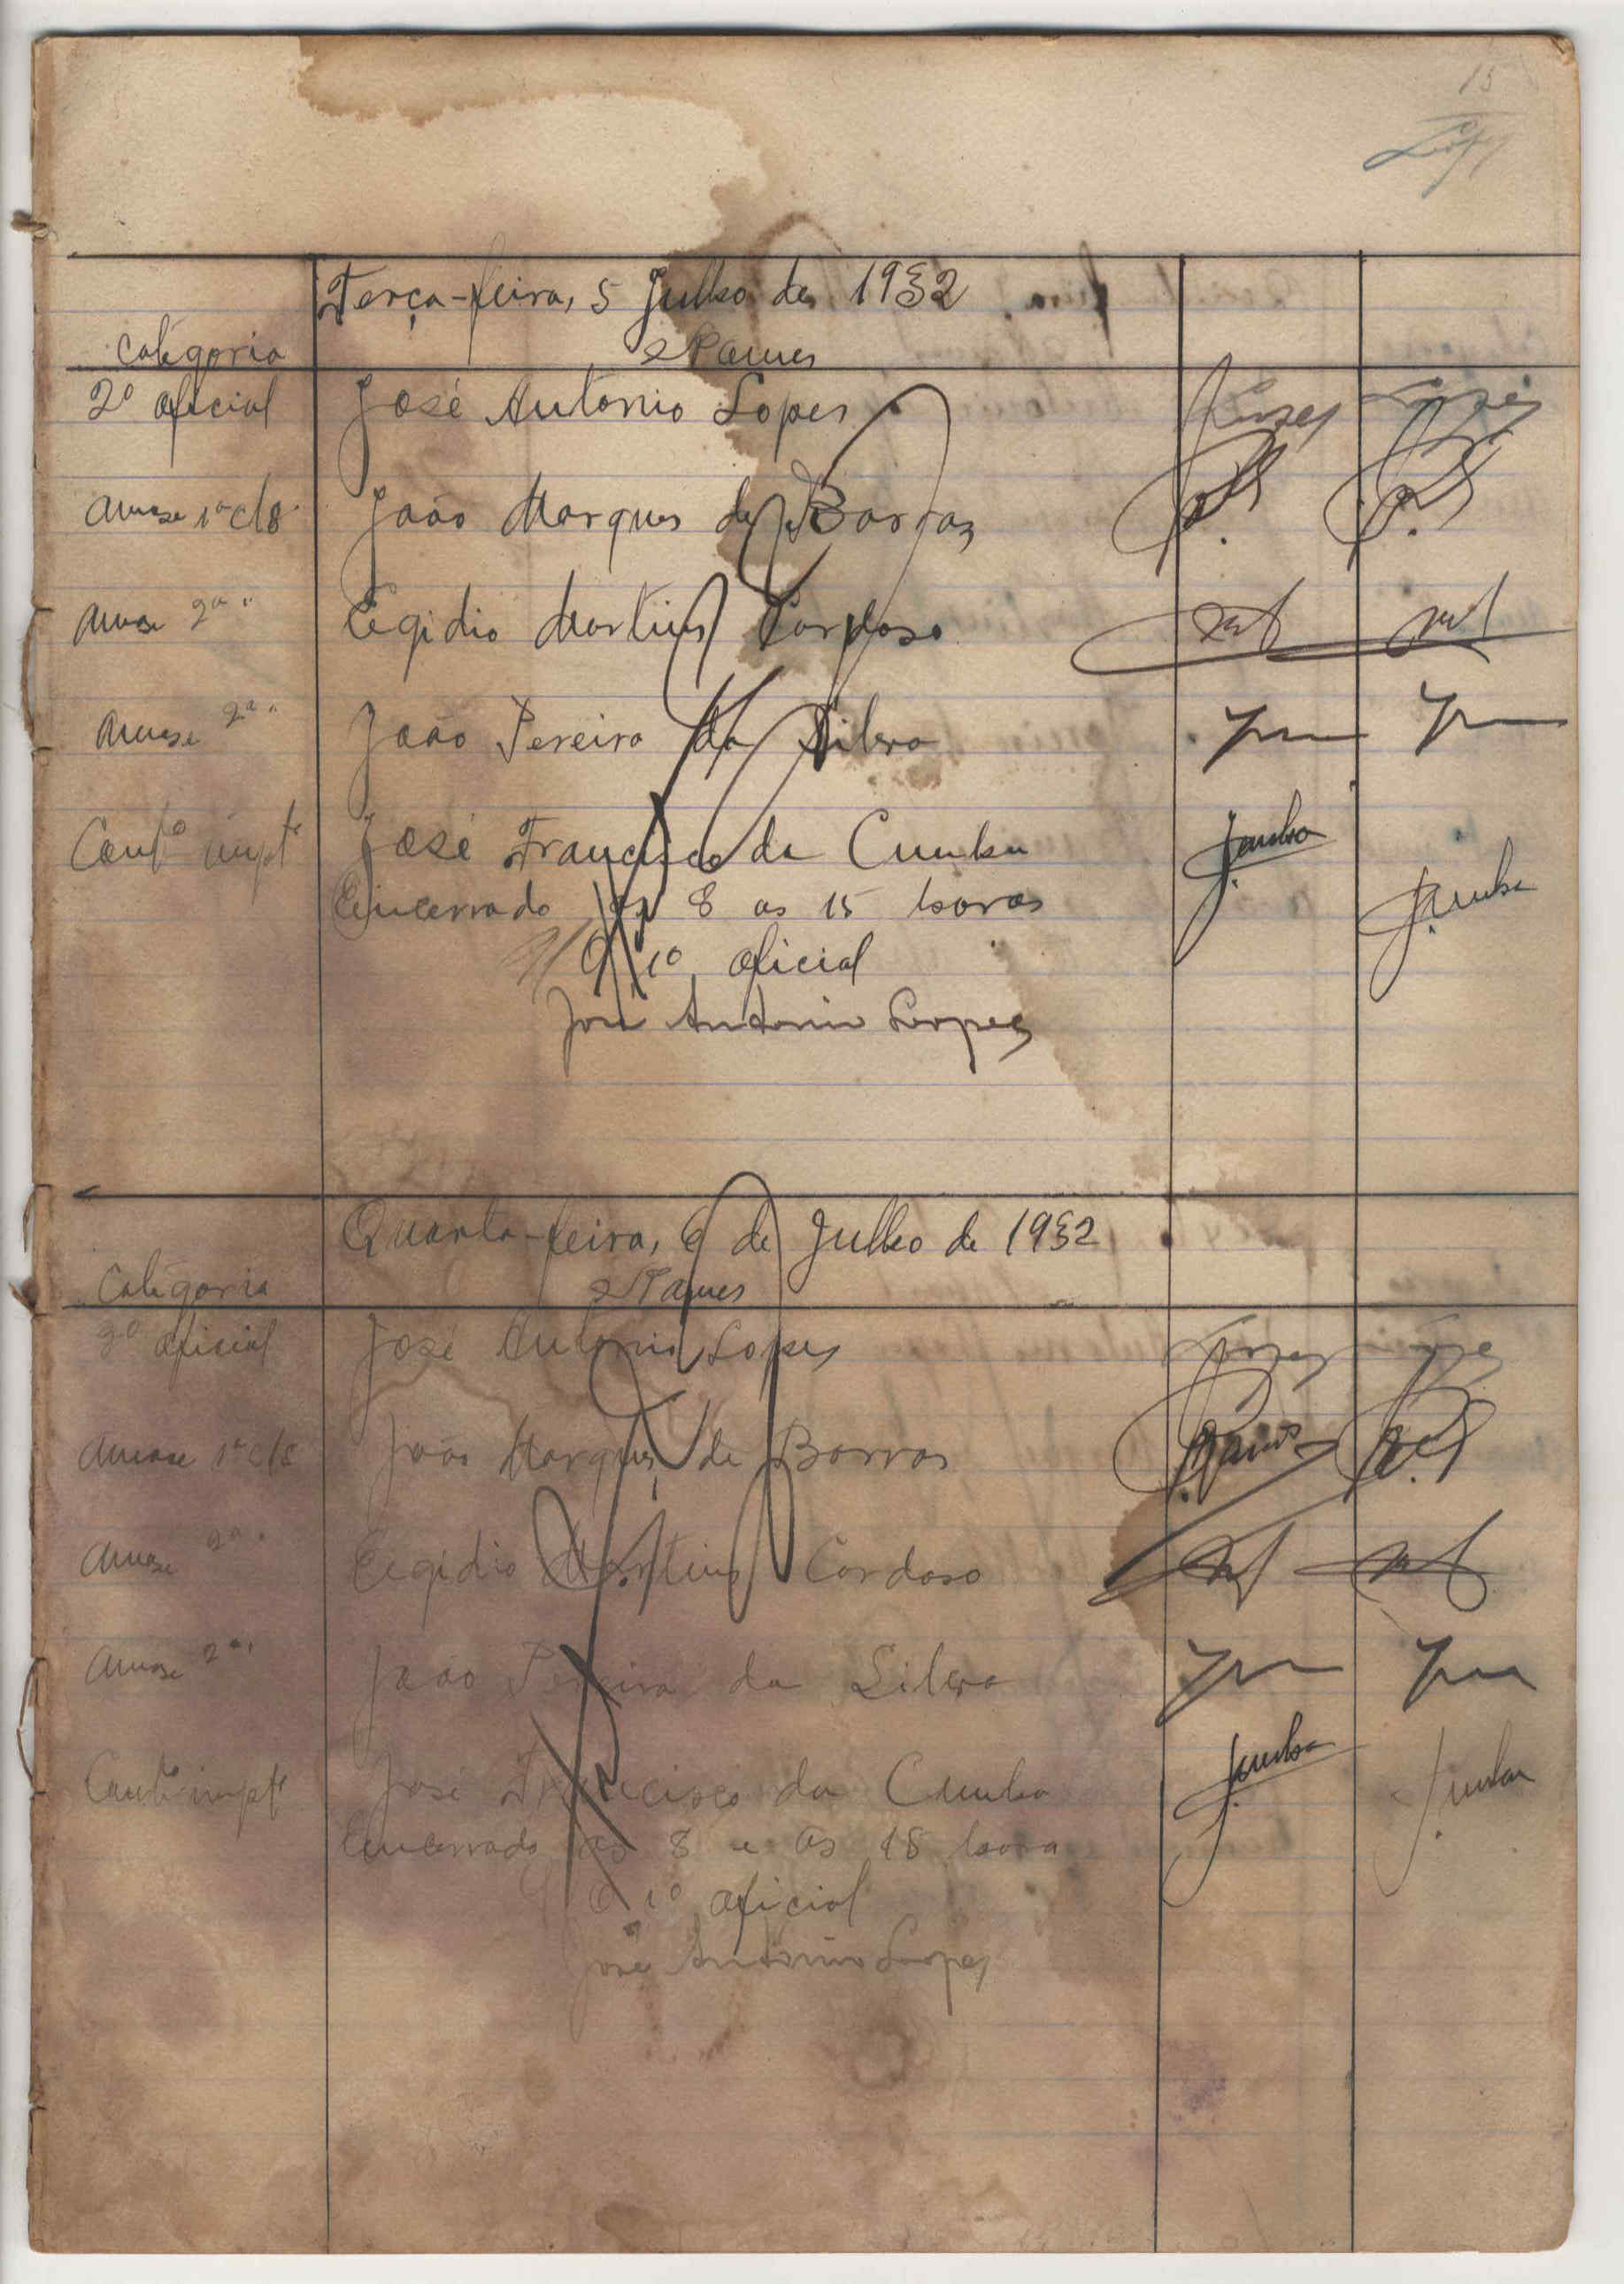 15
Lopes
Terça-feira, 5 Julho de 1932
Categoria Nomes
2º oficial José Antonio Lopes Lopes Lopes
1ª cls João Marques de Barros
2ª " Egidio Martins Cardoso
2ª " João Pereira da Silva
José Francisco da Cunha JCunha JCunha
Encerrado às 8 as 15 horas
O 1º oficial
José Antonio Lopes
Quarta-feira, 6 de Julho de 1932
Categoria Nomes
2º oficial José Antonio Lopes Lopes Lopes
1ª cls João Marques de Barros
2ª " Egidio Martins Cardoso
2ª " João Pereira da Silva
José Francisco da Cunha JCunha JCunha
Encerrado às 8 e às 18 hora
O 1º oficial
José Antonio Lopes